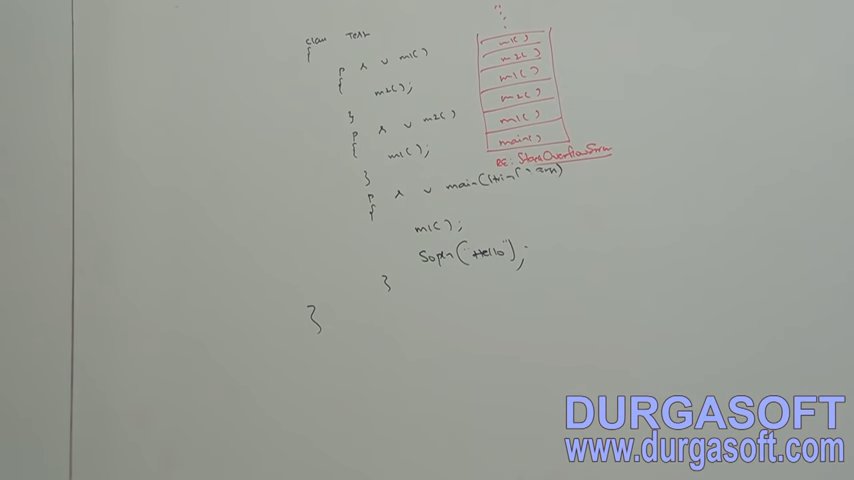 class Test
{
p s v m1()
{
m2();
}
p s v m2()
{
m1();
}
p s v main(String[] args)
{
m1();
Sopln("Hello");
}
}
m1()
m2()
m1()
m2()
m1()
main()
RE: StackOverflowError
DURGASOFT
www.durgasoft.com